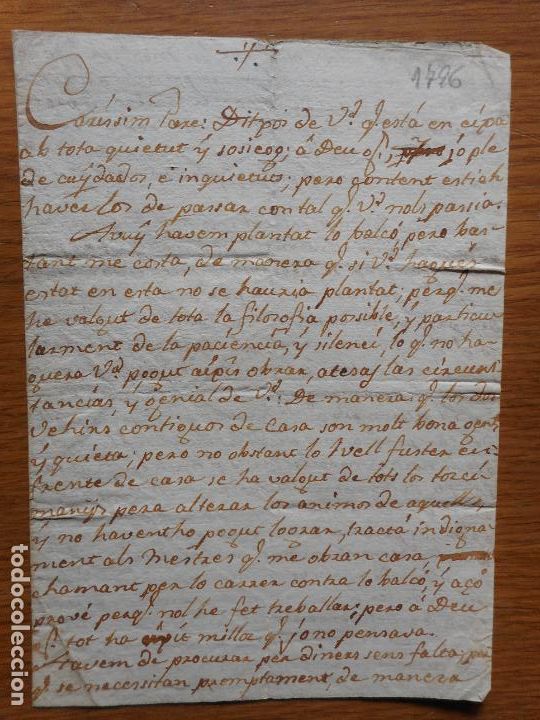 1796
Caríssim Pare: Ditxós de Vd. q.e está en eixa
ab tota quietut y sosiego; á Deu gs.; jo ple
de cuydados, e inquietuts; pero content estich
haverlos de passar contal q.e Vd. nols passia.
Avuy havem plantat lo balcó, pero bas-
tant me costa, de manera q.e si Vd. hagués
estat en esta no se hauria plantat; perq.e me
he valgut de tota la filosofia posible, y particu
larment de la paciència, y silenci, lo q.e no ha-
guera Vd. pogut aixis obrar, atesas las circuns
tancias, y genial de Vd. De manera q.e los dos
vehins contiguos de casa son molt bona gent
y quieta; pero no obstant lo vell fuster en
frente de casa se ha valgut de tots los torci
manys pera alterar los animos de aquells,
y no haventho pogut lograr, tractá indigna
ment als Mestres q.e me obran casa
chamant per lo carrer contra lo balcó, y açó
prové perq.e nol he fet treballar; pero á Deu
gs. tot ha aixit millor q.e jo no pensava.
Havem de procurar per diners sens falta, per
q.e se necessitan promptament, de manera
todocoleccion.net